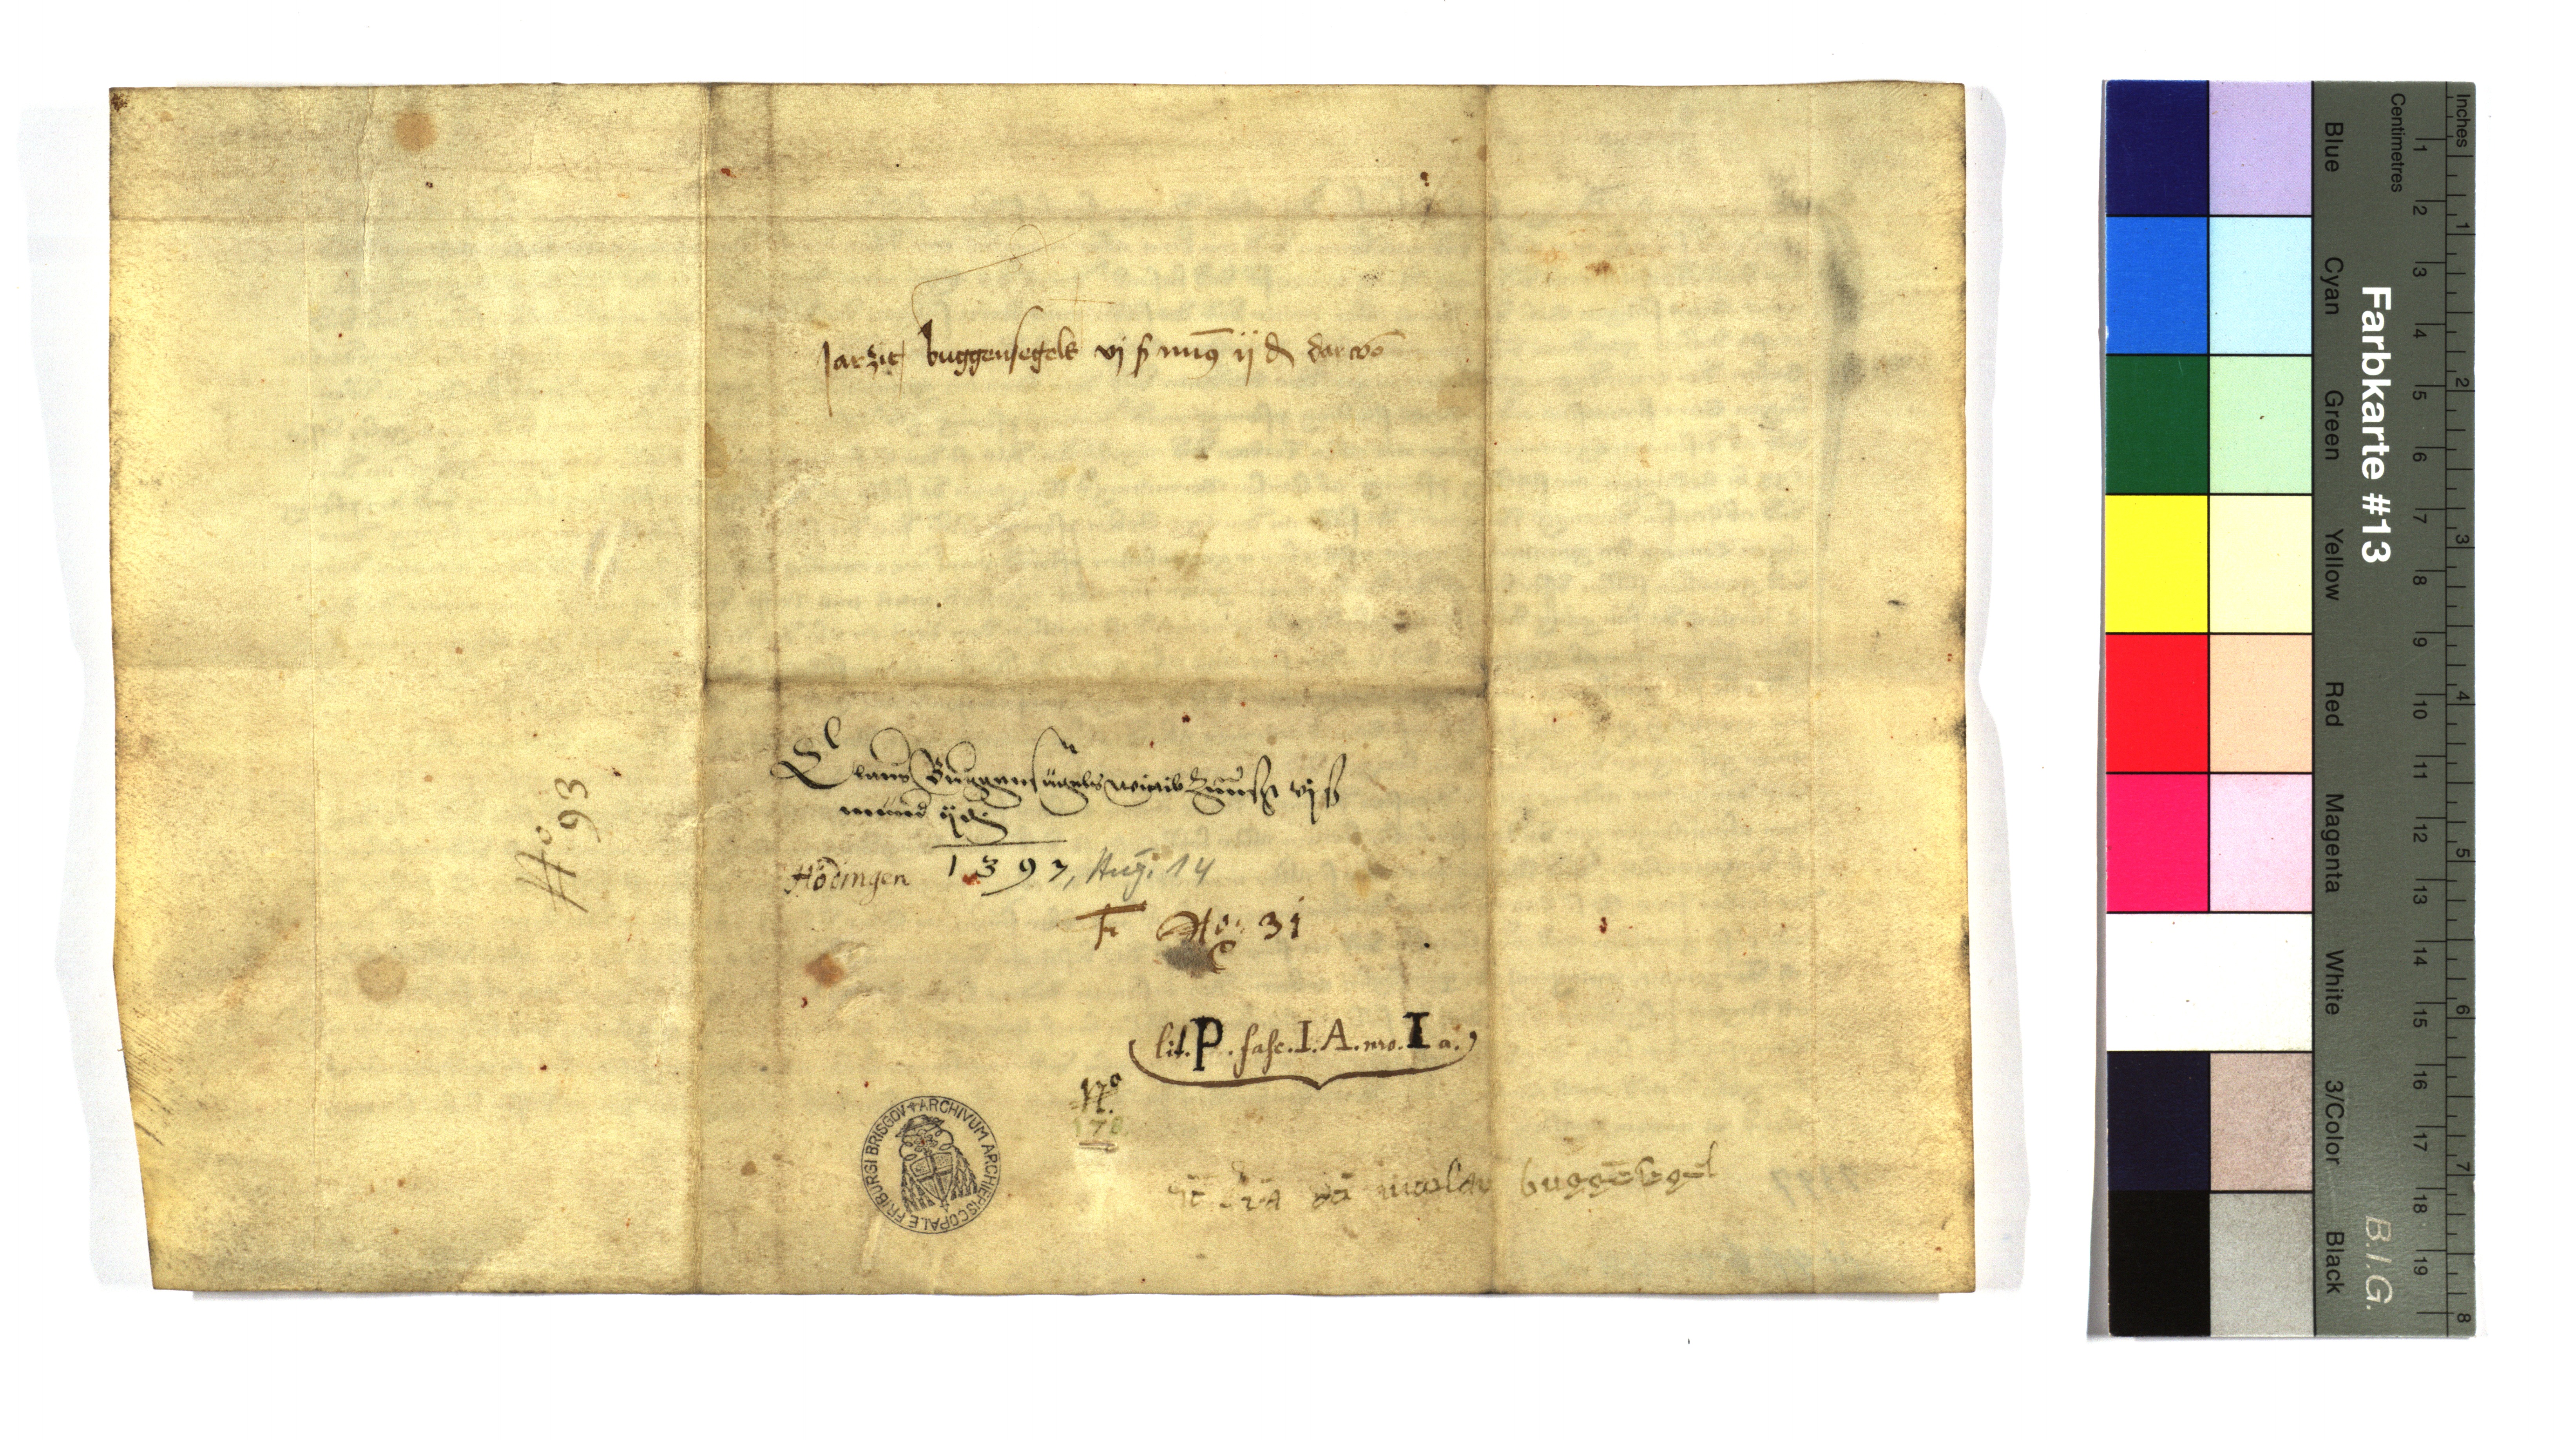 Jarzit buggensegels vj ß minꝰ ij ₰ dar von
Claus Buggensegels witib Zinnß vj ß
minder ij ₰
1393, Aug. 14
Hödingen
No 31
lit. P. fasc. I. A. nro. I a.
No
178
nicolai buggēsegel
No 93
ARCHIVUM ARCHIEPISCOPALE FRIBURGI BRISGOV
Farbkarte #13
B.I.G.
Blue Cyan Green Yellow Red Magenta White 3/Color Black
Inches 1 2 3 4 5 6 7 8
Centimetres 1 2 3 4 5 6 7 8 9 10 11 12 13 14 15 16 17 18 19